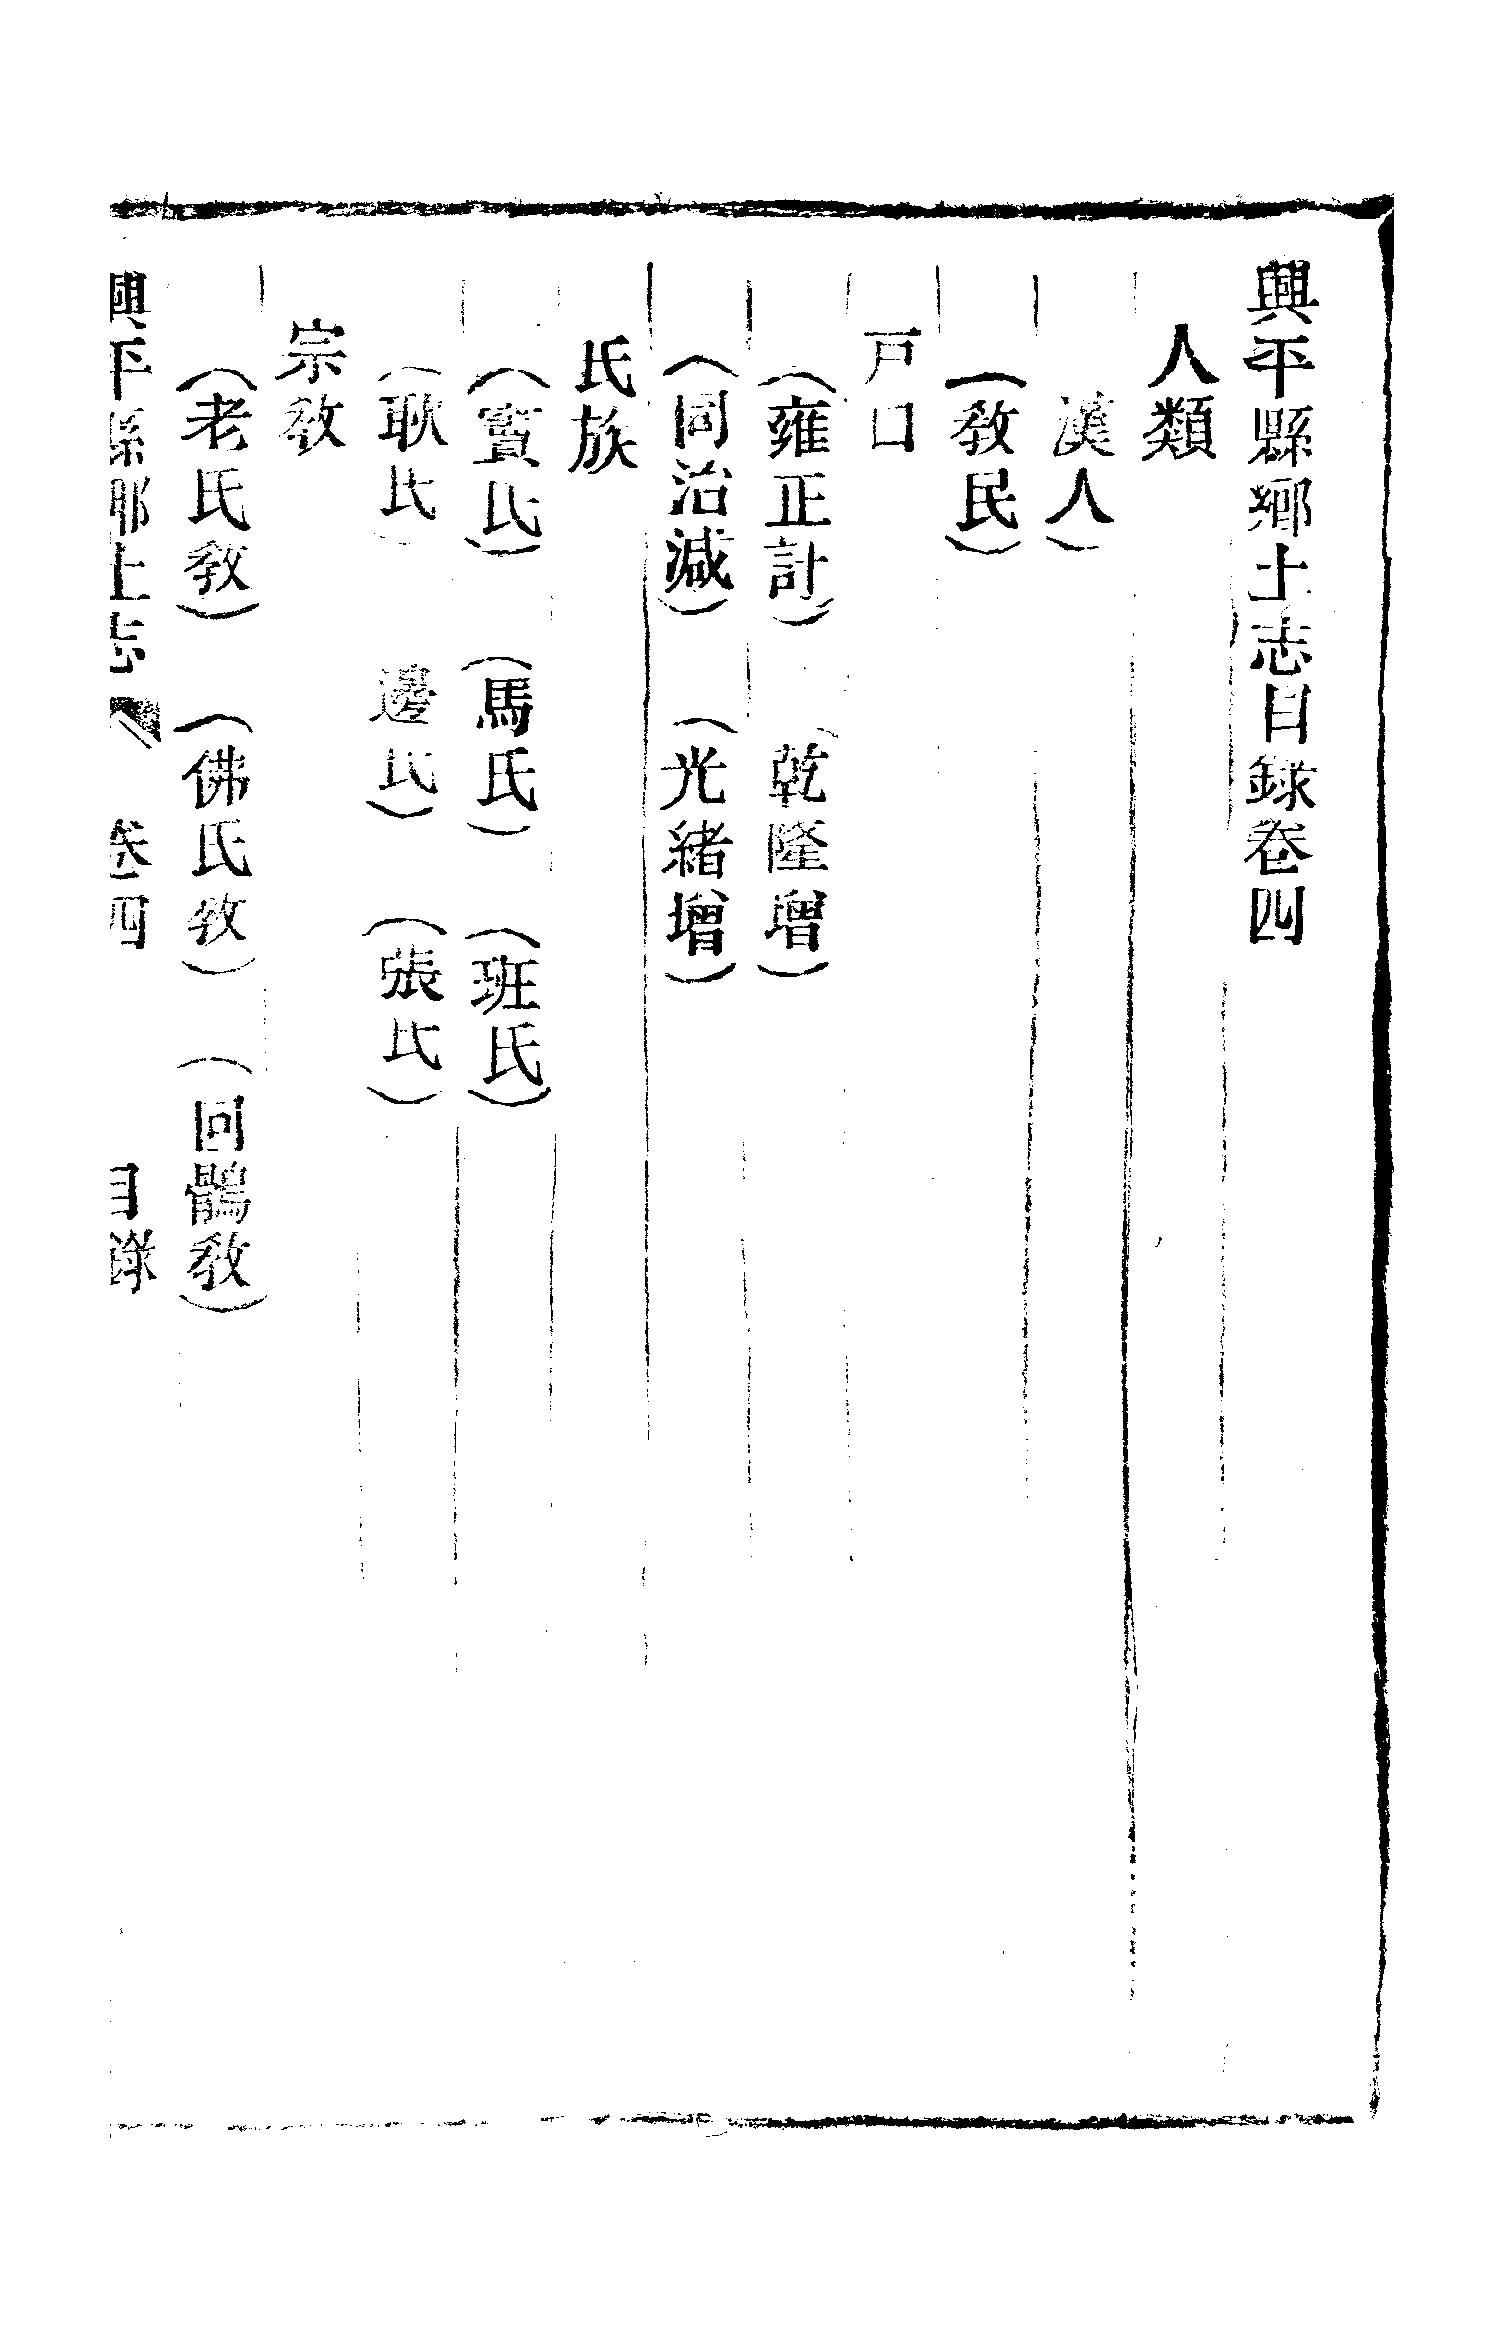 興平縣鄉土志目錄卷四
人類
漢人）
（敎民）
戸口
（雍正計）　乾隆增）
（同治減）　（光緒增）
氏族
（竇氏）　（馬氏）　（班氏）
（耿氏）　邊氏）　（張氏）
宗敎
（老氏敎）　（佛氏敎）　（回鶻敎）
興平縣鄉土志　卷四　目錄